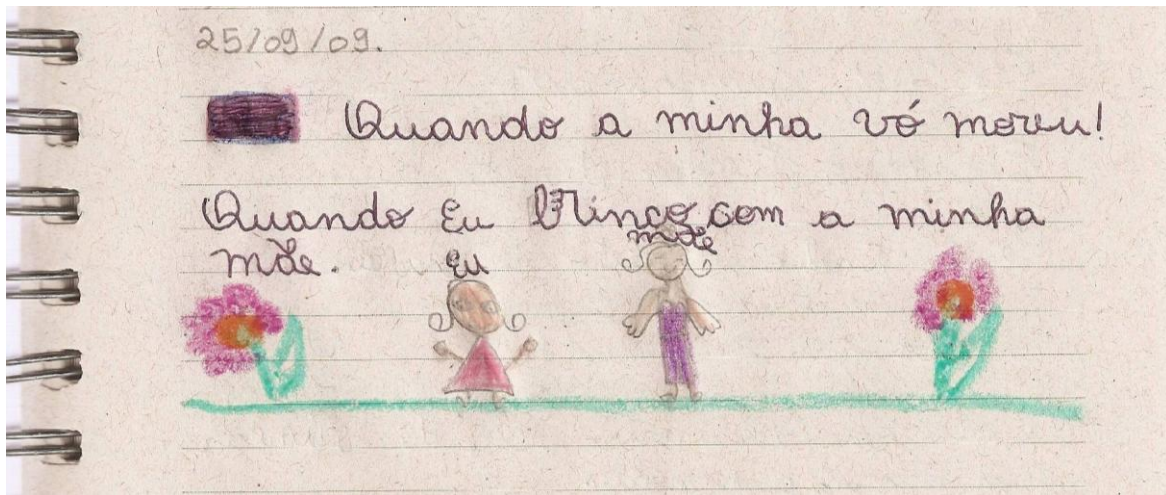 25/09/09.
Quando a minha vó moreu!
Quando Eu brinco com a minha
mãe.
Eu
mãe